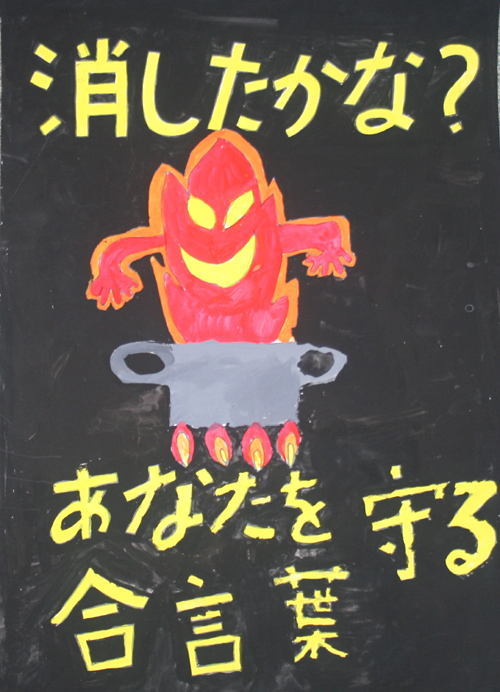 消したかな?
あなたを守る
合言葉